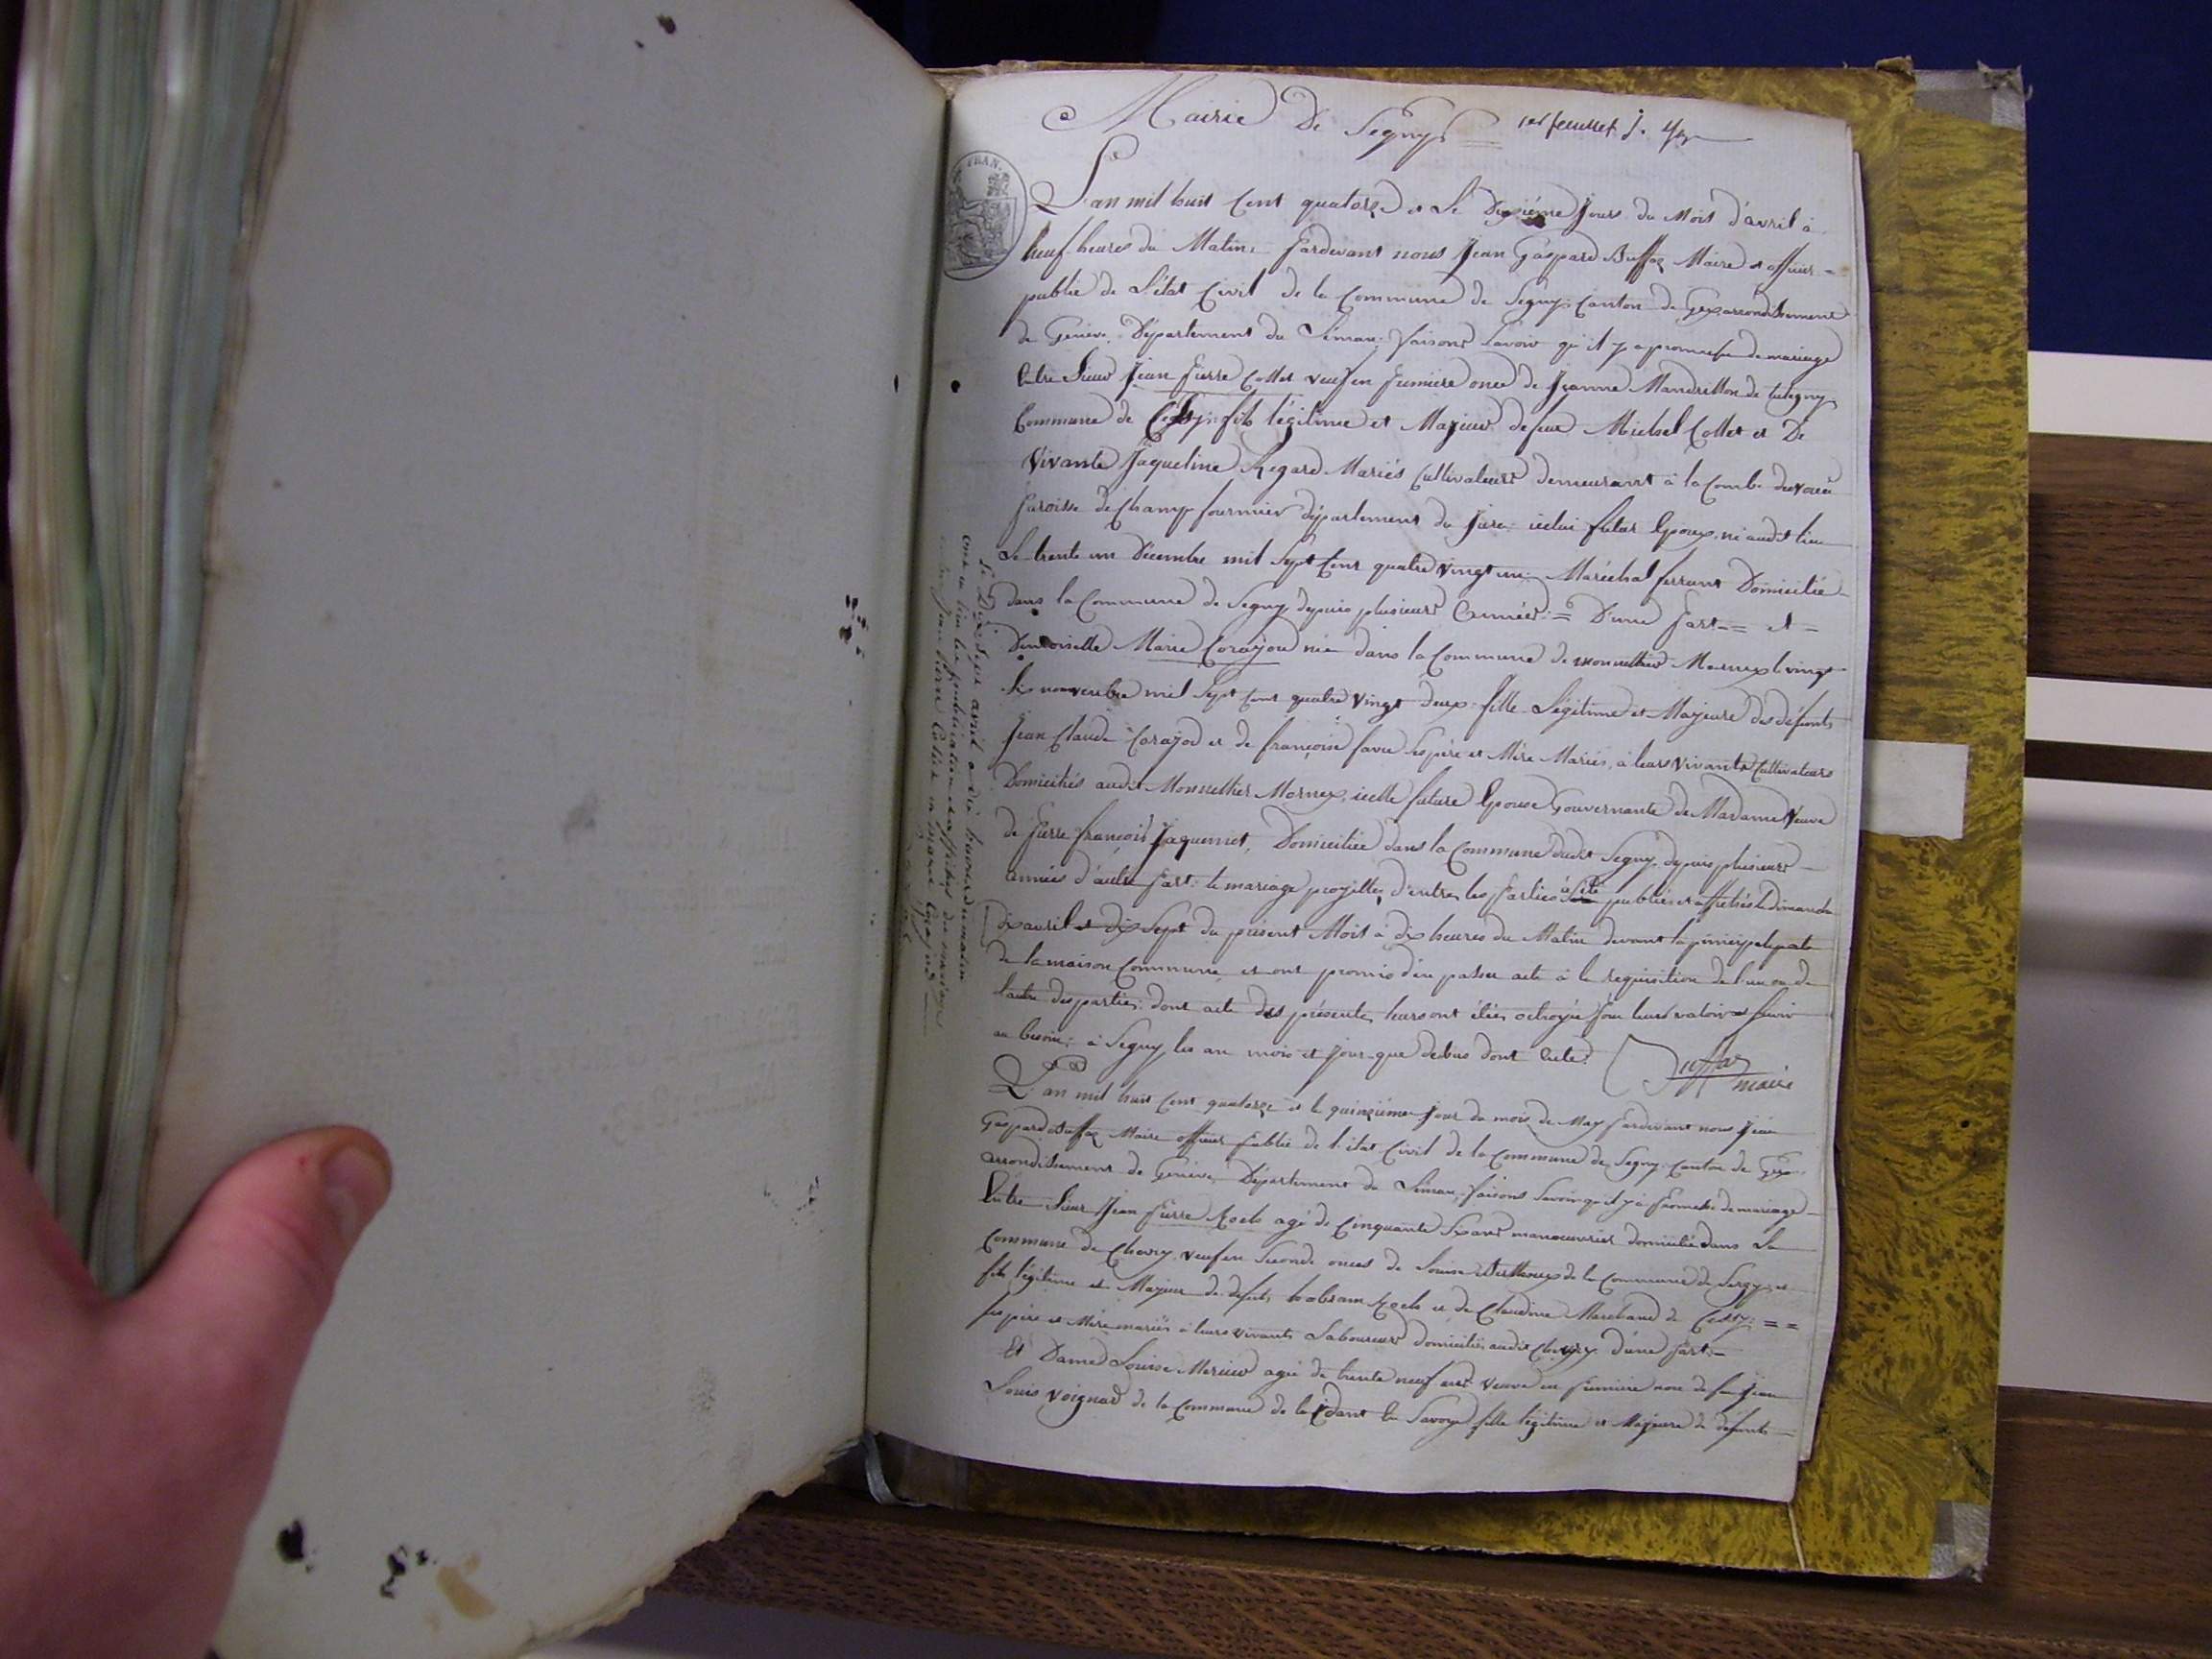 Mairie De Segny 1er feuillet
FRAN.
L'an mil huit Cent quatorze et Le Dixiéme Jours du Mois d'avril à
Neuf heures du Matin, Pardevant nous Jean Gaspard Buffaz Maire et officier
public de L'état Civil de la Commune de Segny Canton de Gex arrondissement
de Genève, Département du Léman: faisons Savoir qu'il y a promesse de mariage
Entre Sieur Jean Pierre Collet veuf en Premiere once de Jeanne Mandrillon de
Commune de Cessy: fils légitime et Majeur de feu Michel Collet et De
Vivante Jaqueline Regard Mariés Cultivateurs demeurant à la Combe
Paroisse de Champfourmier département du Jura: icelui futur Epoux, né audit lieu
Le trente un Décembre mil Sept Cent quatre vingt un: Maréchal ferrant Domicilié
dans la Commune de Segny depuis plusieurs Années: = D'une Part = et =
Demoiselle Marie Corajod née dans la Commune de monnettier Mornex le vingt
Six novembre mil Sept Cent quatre Vingt deux: fille Légitime et Majeure des défunts
Jean Claude Corajod et de françoise favre Ses père et Mère Mariés, à leurs Vivants Cultivateurs
Domiciliés audit Monnettier Mornex, icelle future Epouse Gouvernante de Madame Veuve
de Pierre françois Jaquemet, Domiciliée dans la Commune dudit Segny, depuis plusieurs
années d'autre Part: le mariage projetté d'entre les Parties à été publiés et affichés le Dimanche
Dix avril et dix Sept du présent Mois à dix heures du Matin devant la principale porte
de la maison Commune, et ont promis d'en passer acte à la requisition de l'un ou de
l'autre des parties: dont acte des présentes leurs ont étées octroyé Pour leurs valoir et Servir
au besoin: à Segny les an mois et jour que dessus dont acte. Buffaz
maire
Le Dix Sept avril a dix heures du matin
ont eu lieu les publications et affiches du mariage
entre Jean Pierre Collet et Marie Corajod
L'an mil huit Cent quatorze et le quinziéme Jour du mois de May Pardevant nous Jean
Gaspard Buffaz Maire officier Public de l'état Civil de la Commune de Segny Canton de Gex
arrondissement de Genève, Département du Léman, faisons Savoir qu'il y à Promesse de mariage
Entre Sieur Jean Pierre agé de Cinquante Six ans manoeuvrier domicilié dans La
Commune de Chevry veuf en Seconde onces de Louise de la Commune de Sergy, et
fils légitime et Majeur de défunts et de Claudine Marchand de Cessy = =
Ses père et Mère mariés à leurs vivants Laboureurs domiciliés audit Chevry d'une Part =
Et Dame Louise Mercier agée de trente neuf ans veuve en Premiere once de feu Jean
Louis voignad de la Commune de la dans la Savoye fille légitime et Majeure de défunts